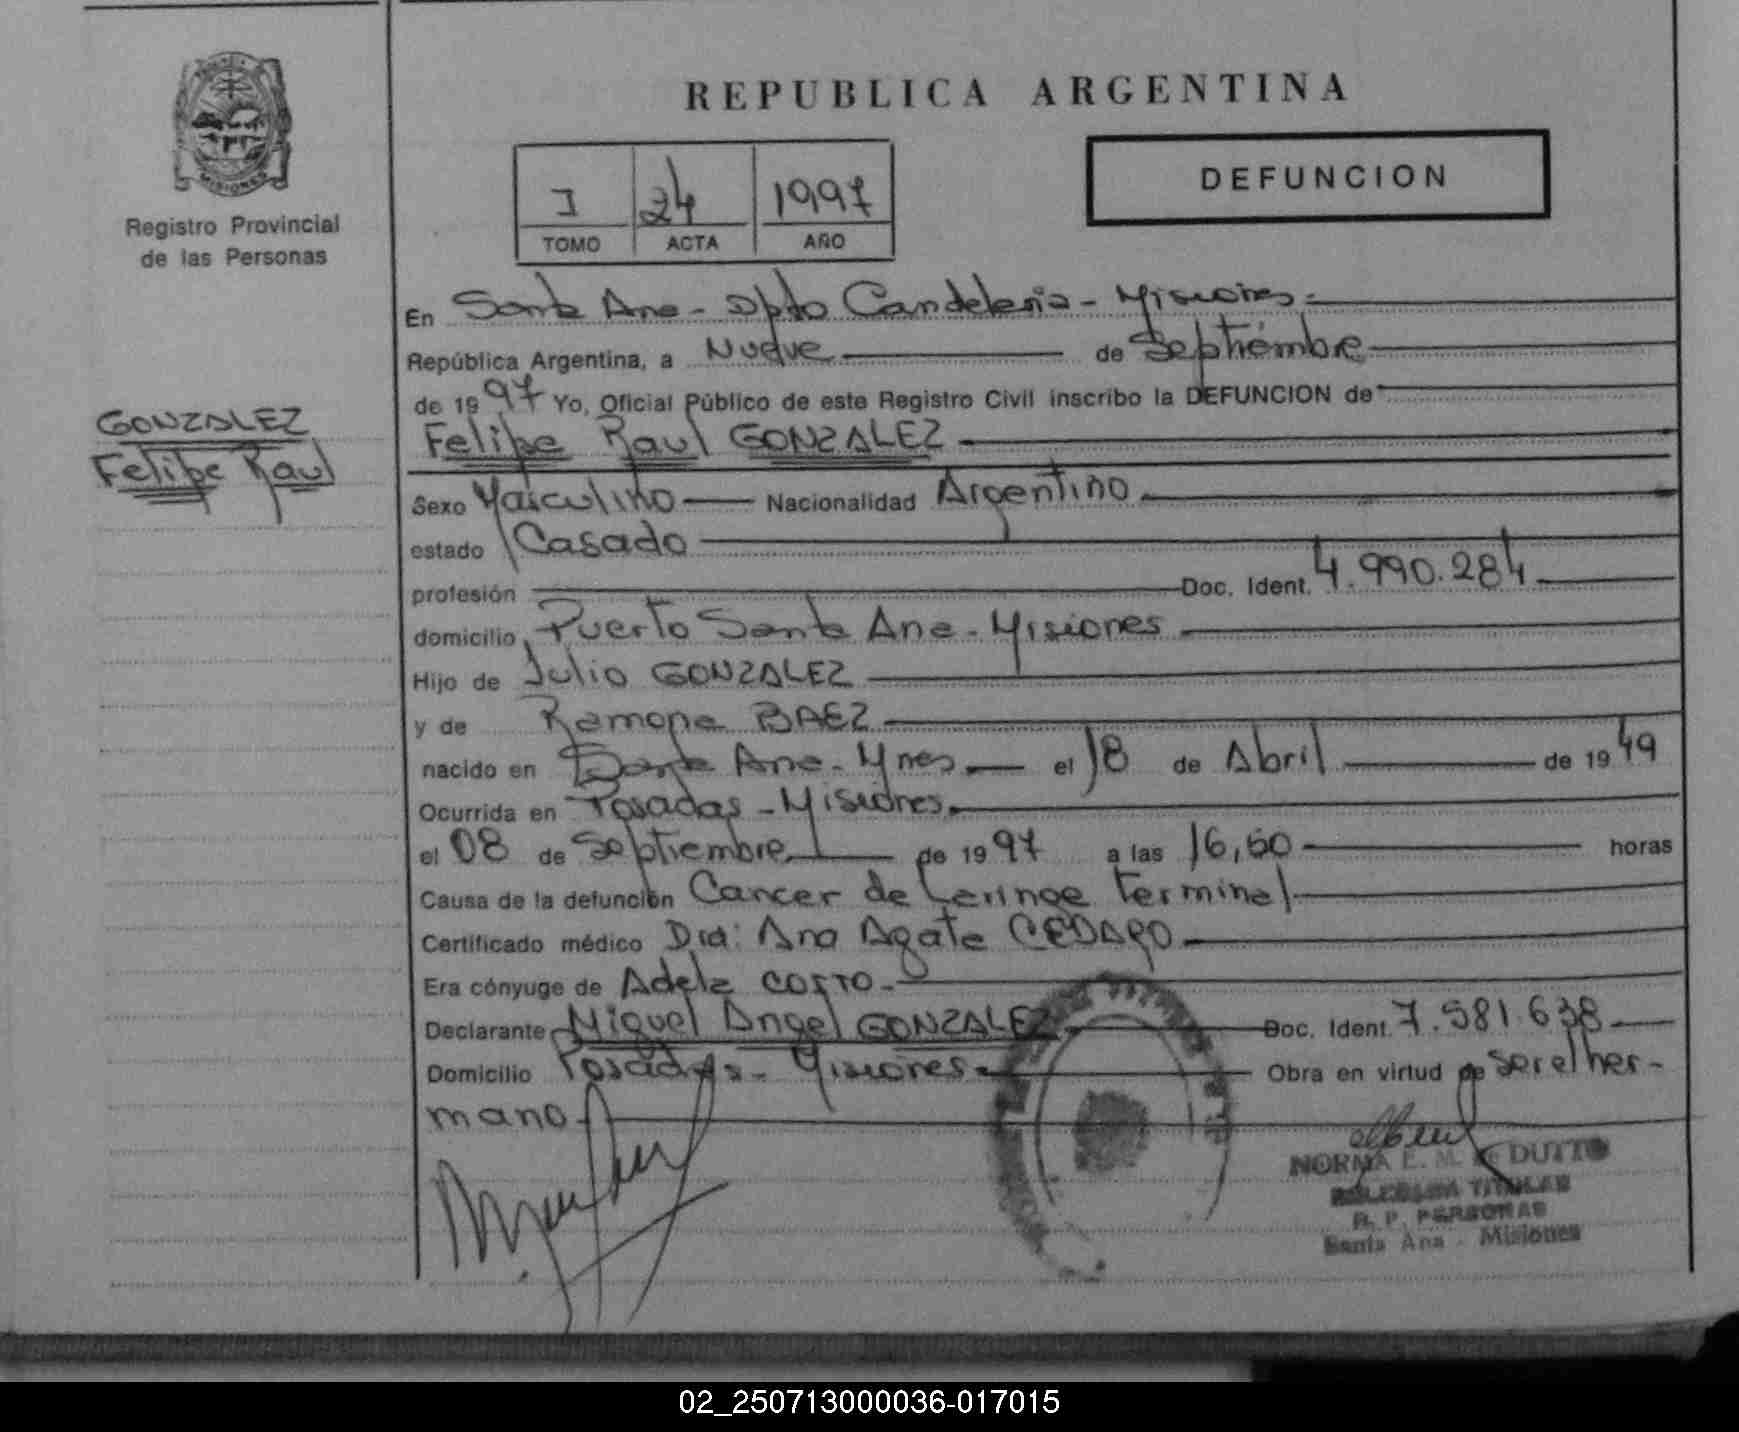 MISIONES
Registro Provincial
de las Personas
REPUBLICA ARGENTINA
I 24 1997
TOMO ACTA AÑO
DEFUNCION
En Santa Ana - Dpto Candelaria - Misiones.-
República Argentina, a Nueve de Septiembre
de 1997 Yo, Oficial Público de este Registro Civil inscribo la DEFUNCION de
GONZALEZ
Felipe Raul
Felipe Raul GONZALEZ
Sexo Masculino Nacionalidad Argentino
estado Casado
profesión Doc. Ident. 4.990.284
domicilio Puerto Santa Ana - Misiones
Hijo de Julio GONZALEZ
y de Ramona BAEZ
nacido en Santa Ana - Mnes. el 18 de Abril de 1949
Ocurrida en Posadas - Misiones.
el 08 de Septiembre de 1997 a las 16,50 horas
Causa de la defunción Cancer de Laringe terminal
Certificado médico Dra: Ana Agata
Era cónyuge de Adela
Declarante Miguel Angel GONZALEZ Doc. Ident. 7.581.638
Domicilio Posadas - Misiones Obra en virtud de ser el her-
mano
NORMA E. M. de DUTTO
TITULAR
R. P. PERSONAS
Santa Ana - Misiones
02_250713000036-017015